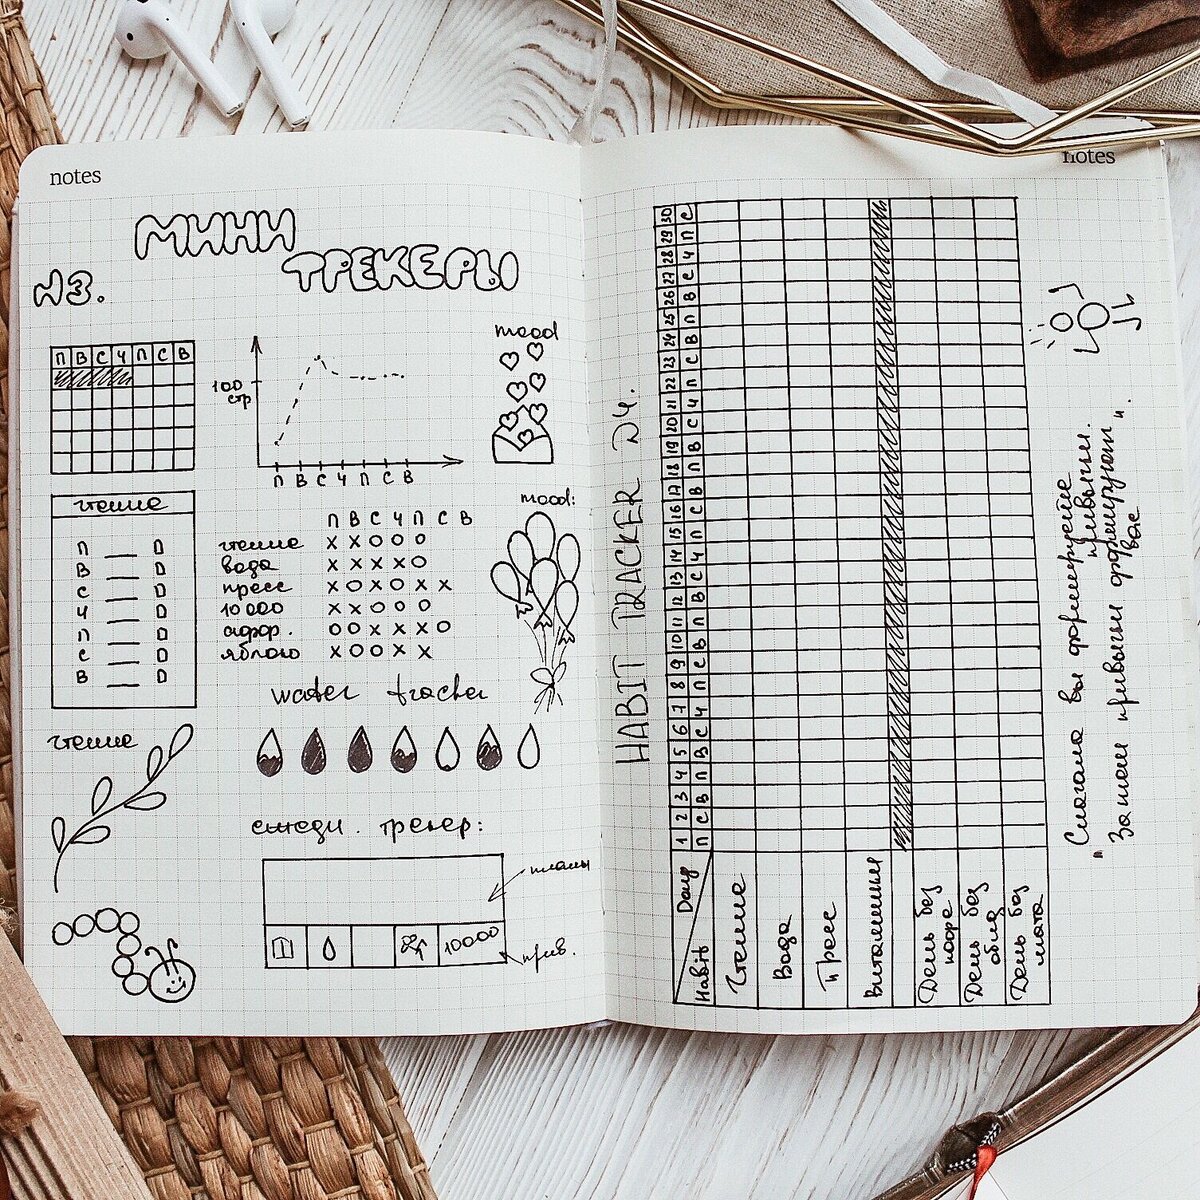 notes
МИНИ
ТРЕКЕРЫ
№3.
П В С Ч П С В
100
стр
П В С Ч П С В
mood
чтение
П
В
С
Ч
П
С
В
П В С Ч П С В
чтение x x o o o
вода x x x x o
пресс x o x o x x
10 000 x x o o o
афор. o o x x x o
яблоко x o o x x
mood:
water tracker
чтение
ежедн. трекер:
планы
10000
прив.
notes
HABIT TRACKER №4.
1 2 3 4 5 6 7 8 9 10 11 12 13 14 15 16 17 18 19 20 21 22 23 24 25 26 27 28 29 30
Day
Habit
Чтение
Вода
Пресс
Витамины
День без кофе
День без
День без мата
"Сначала вы формируете привычки.
Затем привычки формируют вас".